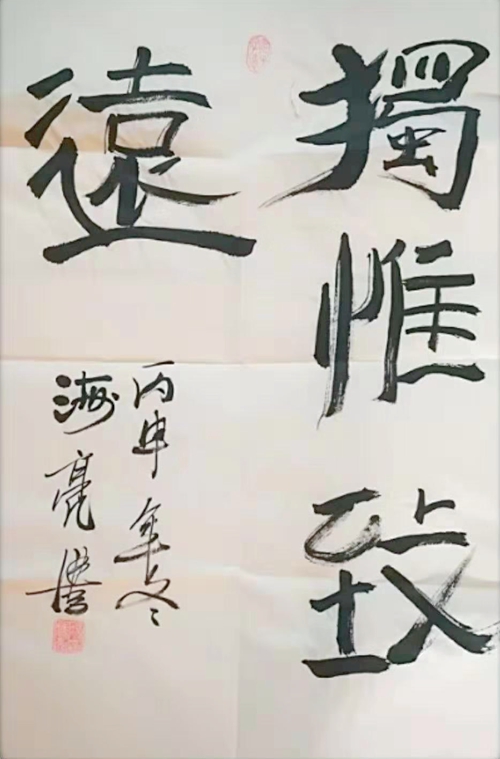 獨惟致
遠
丙申年冬
海亮書